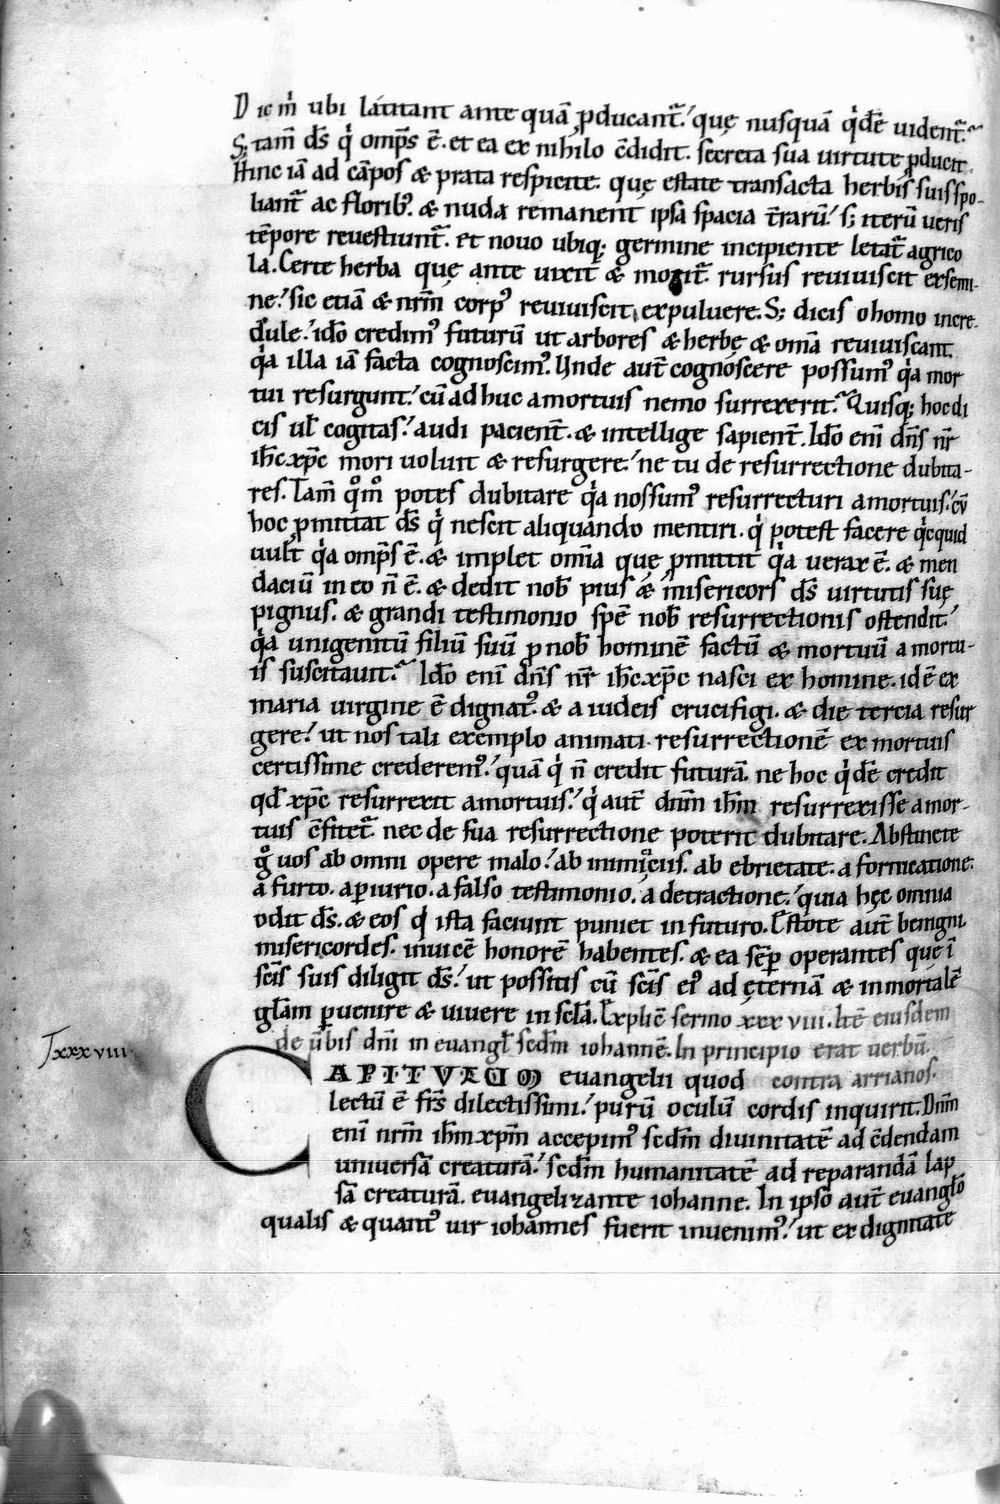 Dic m̄ ubi latitant ante quā ꝓducant᷑.ʼ quę nusquā q̇dē uident᷑.
S; tam̄ d̄s q̇ omp̄s ē. et ea ex nihilo c̄didit. secreta sua uirtute ꝓducit.
Hinc iā ad cāpos & prata respicite. quę estate transacta herbis suis spo-
liant᷑ ac florib⁹. & nuda remanent ipsa spacia t̄rarū.ʼ s; iterū ueris
tēpore reuestiunt᷑. et nouo ubiq; germine incipiente letat᷑ agrico
la. Certe herba quę ante uixit & morit᷑. rursus reuiuiscit ex semi-
ne.ʼ sic etiā & nr̄m corp⁹ reuiuiscit, ex puluere. S; dicis o homo incre-
dule.ʼ idō credim⁹ futurū ut arbores & herbę & om̄a reuiuiscant.
q̇a illa iā facta cognoscim⁹. Unde aut̄ cognoscere possum⁹ q̇a mor
tui resurgunt.ʼ cū adhuc a mortuis nemo surrexerit. Quisq; hoc di
cis ul̄ cogitas.ʼ audi pacient᷑. & intellige sapient᷑. Idō enī dn̄s nr̄
ih̄c xp̄c mori uoluit & resurgere.ʼ ne tu de resurrectione dubita-
res. Tam̄ q̊m̊ potes dubitare q̇a nos sum⁹ resurrecturi a mortuis.ʼ cū
hoc ꝓmittat d̄s q̇ nescit aliquando mentiri. q̇ potest facere q̇cquid
uult q̇a omp̄s ē. & implet om̄ia quę ꝓmittit q̇a uerax ē. & men
daciū in eo n̄ ē. & dedit nob̄ pius & misericors d̄s uirtutis suę
pignus. & grandi testimonio spē nob̄ resurrectionis ostendit.ʼ
q̇a unigenitū filiū suū ꝓ nob̄ hominē factū & mortuū a mortu-
is suscitauit. Idō enī dn̄s nr̄ ih̄c xp̄c nasci ex homine. idē ex
maria uirgine ē dignat⁹. & a iudeis crucifigi. & die tercia resur
gere.ʼ ut nos tali exemplo animati. resurrectionē ex mortuis
certissime crederem⁹.ʼ quā q̇ n̄ credit futurā. ne hoc q̇dē credit
qd̄ xp̄c resurrexit a mortuis.ʼ q̇ aut̄ dn̄m ih̄m resurrexisse a mor-
tuis c̄fitet᷑. nec de sua resurrectione poterit dubitare. Abstinete
g̊ uos ab omni opere malo.ʼ ab inimiciis. ab ebrietate. a fornicatione.
a furto. a ꝑiurio. a falso testimonio. a detractione.ʼ quia hęc omnia
odit d̄s. & eos q̇ ista faciunt puniet in futuro. Estote aut̄ benigni.
misericordes. inuicē honorē habentes. & ea sēꝑ operantes quę ī
sc̄is suis diligit d̄s.ʼ ut possitis cū sc̄is ei⁹ ad ęternā & inmortalē
gl̄am ꝑuenire & uiuere in sc̄la. Explic̄ sermo xxxviii. Itē eiusdem
de ūbis dn̄i in euangl̄ scd̄m iohannē. In principio erat uerbū.
Txxxviiii.
CAPITULUM euangelii quod contra arrianos.
lectū ē fr̄s dilectissimi.ʼ purū oculū cordis inquirit. Dn̄m
enī nr̄m ih̄m xp̄m accepim⁹ scd̄m diuinitatē ad c̄dendam
uniuersā creaturā.ʼ scd̄m humanitatē ad reparandā lap
sā creaturā. euangelizante iohanne. In ipso aut̄ euangl̄o
qualis & quant⁹ uir iohannes fuerit inuenim⁹.ʼ ut ex dignitate